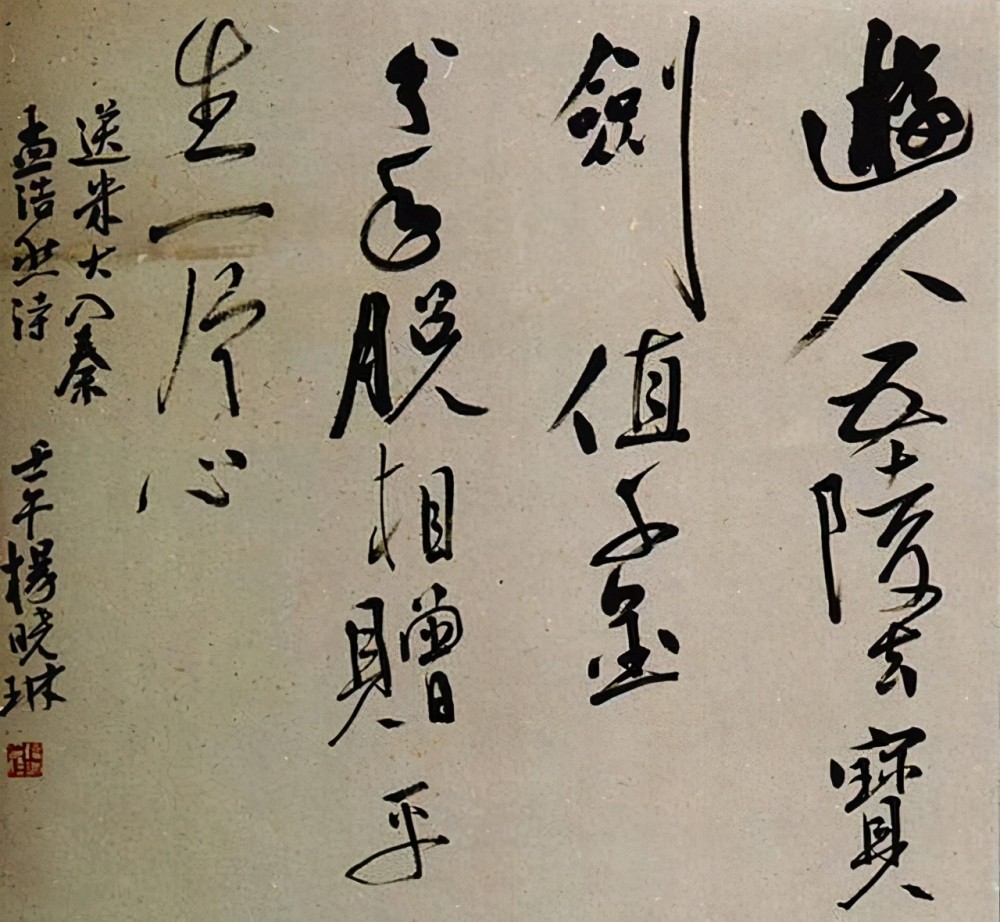 遊人五陵去寶
劍值千金
分手脫相贈平
生一片心
送朱大入秦
孟浩然詩 壬午楊曉琳